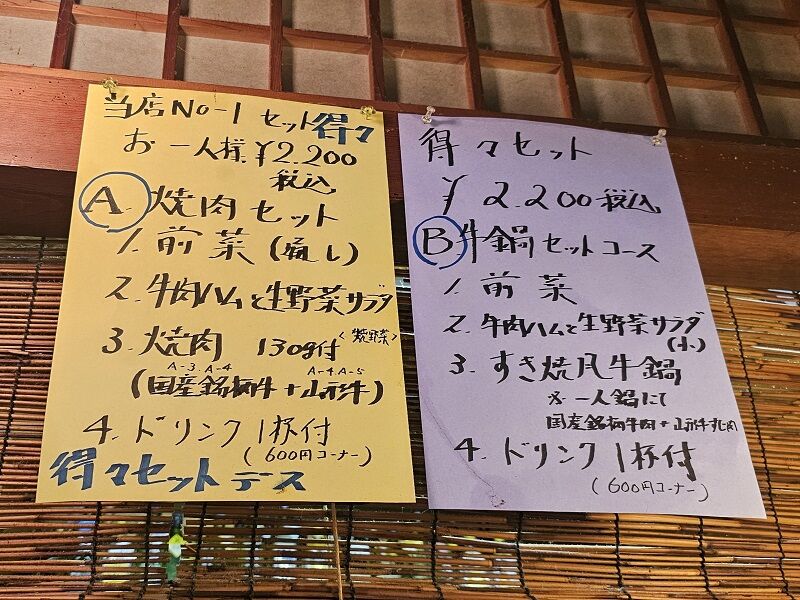 当店No-1 セット得々
お一人様 ¥2.200
税込
A. 焼肉セット
1. 前菜 (蒸し)
2. 牛肉ハムと生野菜サラダ
3. 焼肉 130g付 <焼野菜>
A-3. A-4 A-4. A-5
(国産銘柄牛+山形牛)
4. ドリンク1杯付
(600円コーナー)
得々セットデス
得々セット
¥2.200税込
B 牛鍋セットコース
1. 前菜
2. 牛肉ハムと生野菜サラダ
(小)
3. すき焼風牛鍋
※一人鍋にて
国産銘柄牛肉+山形牛
4. ドリンク1杯付
(600円コーナー)